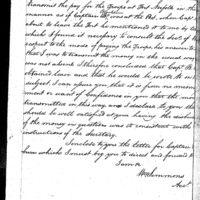 transmit the pay for the Troops at Fort Fayette in the
manner as if Captain was at the Post, when Capt.
about to leave the Fort he mentioned it to me by
which I found it necessary to consult the Sect. of
respect to the mode of paying the Troops, his answer to
that I was to transmit the money in the usual way
was not above I therefore conclude that Capt.
obtained leave and that he would be
subject I can assure you that it is from no
ment or want of Confidence in you that the mon
transmitted in this way, and I declare to you tha
should be well satisfied at you having the disbur
of the money in question was it consistent with
instructions of the Secretary.
I enclose to you the letter for Captain
ham which I must beg you to direct and forward to
I am
W Simmons
Act